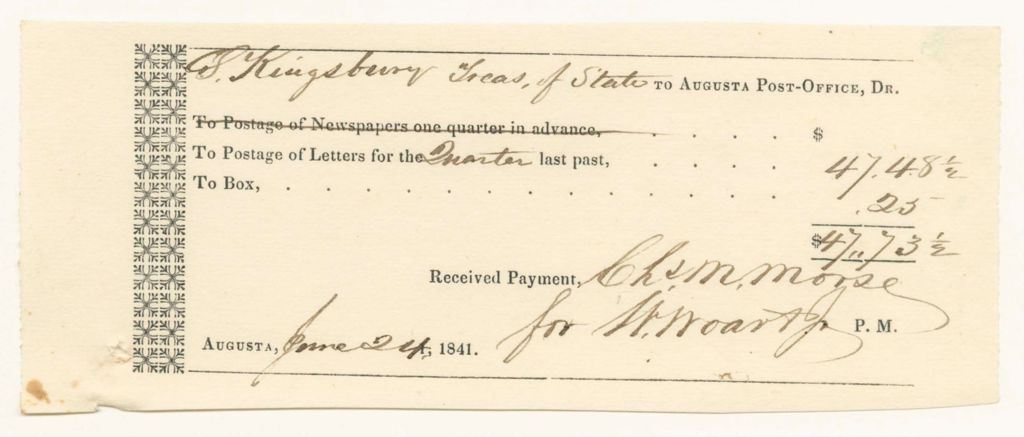 S. Kingsbury Treas. of State TO AUGUSTA POST-OFFICE, DR.
To Postage of Newspapers one quarter in advance, . . . . $
To Postage of Letters for the Quarter last past, . . . . . 47.48½
To Box, . . . . . . . . . . . . . .25
$47.73½
Received Payment, Chs. M. Morse
for W. Woart Jr P. M.
AUGUSTA, June 24, 1841.